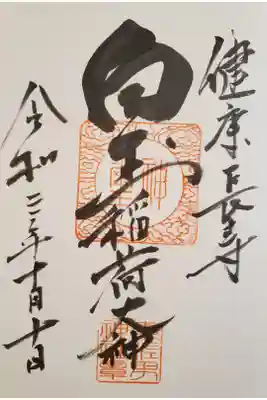 健康長寿
白玉稲荷大神
令和三年十月十日